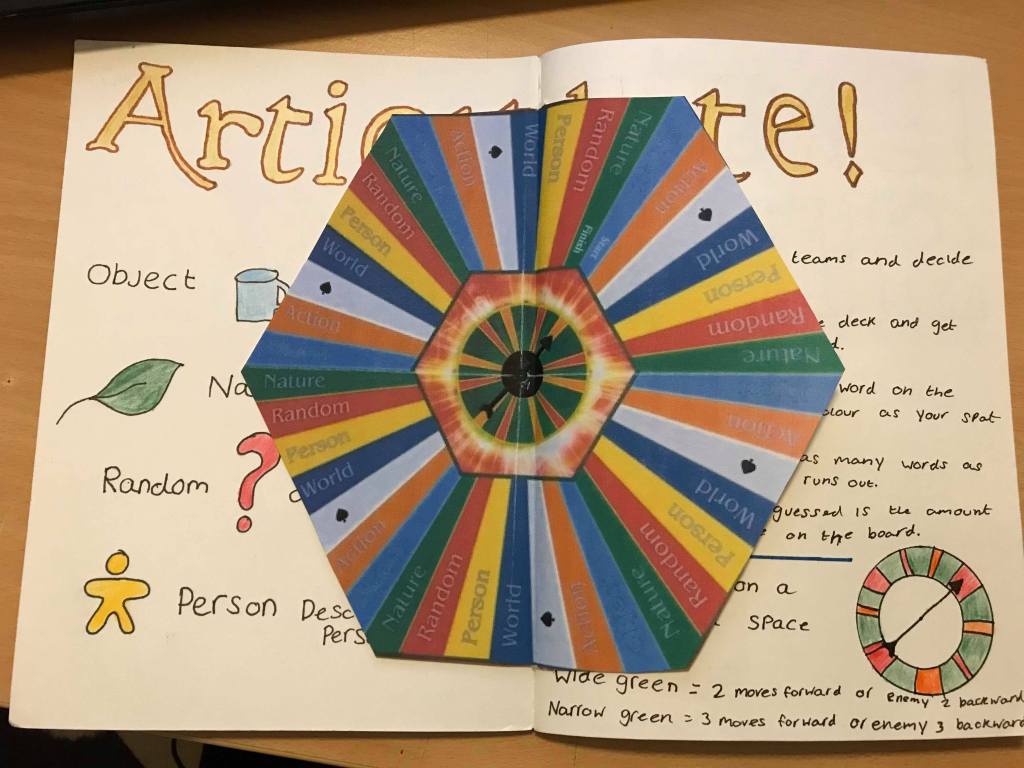 Arti te!
Object
Na
Random
Person Desc
Pers
teams and decide
deck and get
word on the
colour as your spot
as many words as
runs out.
guessed is the amount
on the board.
on a
space
Wide green = 2 moves forward or enemy 2 backward
Narrow green = 3 moves forward or enemy 3 backward
World
Person
Random
Nature
Finish
Start
Action
World
Person
Random
Nature
Action
World
Person
Random
Nature
Action
World
Person
Random
Nature
Action
World
Person
Random
Nature
Action
World
Person
Random
Nature
Action